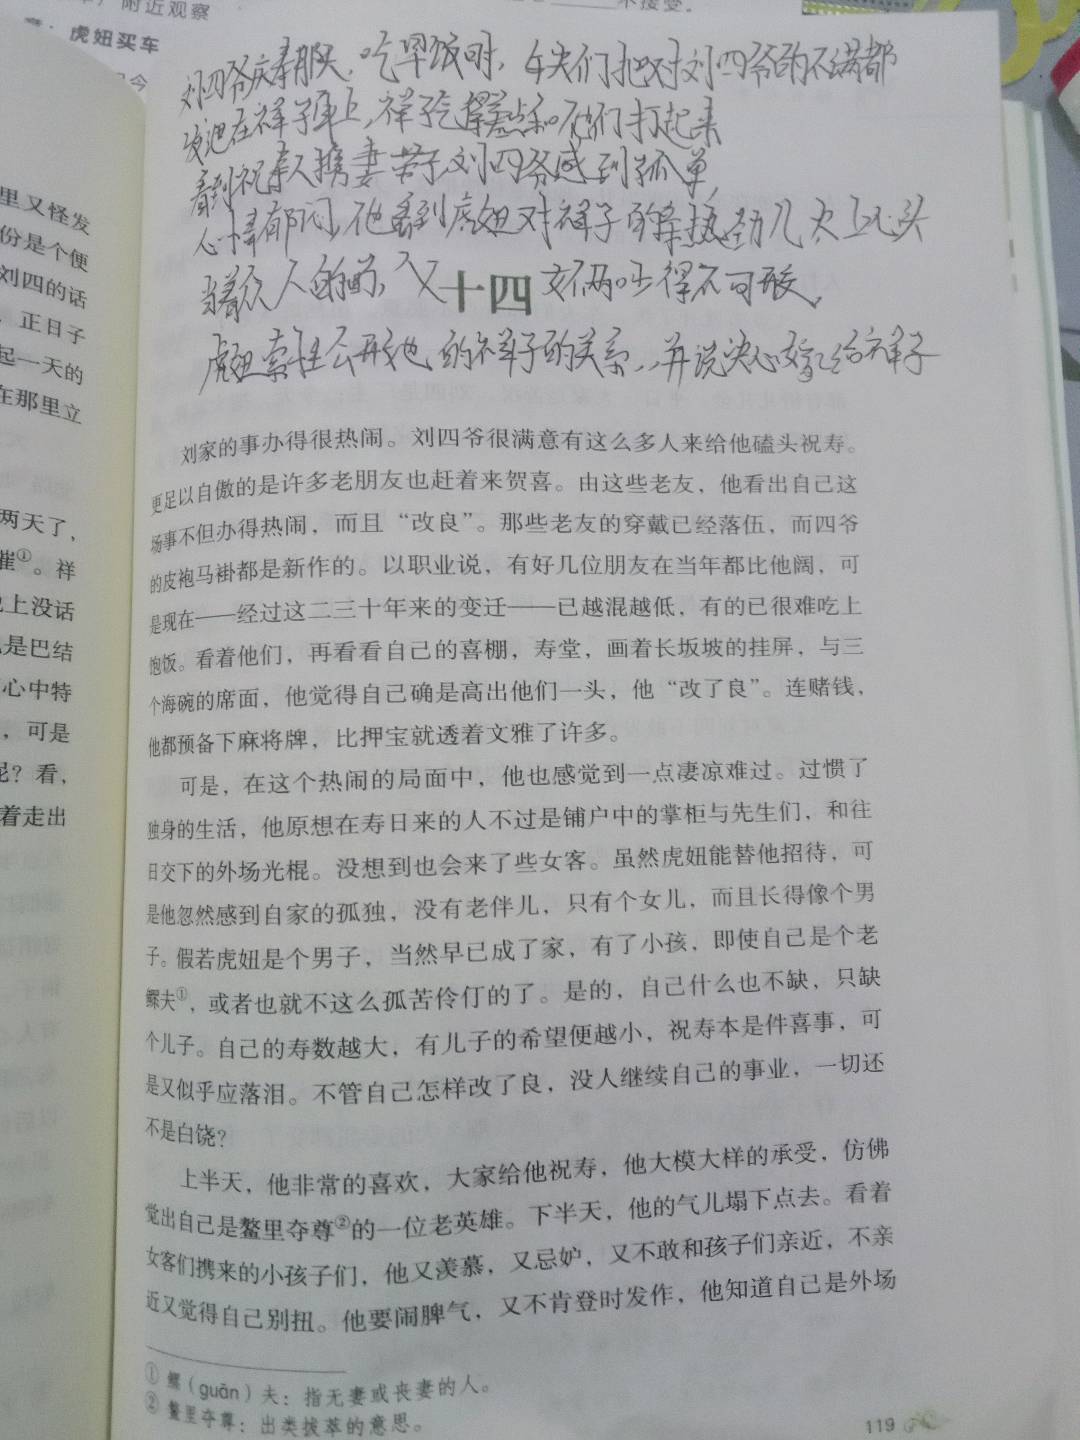 附近观察
虎妞买车
不接受．
里又怪发
份是个便
刘四的话
正日子
起一天的
在那里立
两天了，
催①。祥
上没话
是巴结
心中特
，可是
呢？看，
着走出
刘四爷庆寿那天，吃早饭时，车夫们把对刘四爷的不满都
发泄在祥子身上，祥子差点和他们打起来
看到祝寿人携妻带子，刘四爷感到孤单，
心情郁闷，他看到虎妞对祥子的亲热劲儿火上心头
当着众人的面，父女俩吵得不可开交，
十四
虎妞索性公开她的祥子的关系，并说决心嫁给祥子
刘家的事办得很热闹。刘四爷很满意有这么多人来给他磕头祝寿。
更足以自傲的是许多老朋友也赶着来贺喜。由这些老友，他看出自己这
场事不但办得热闹，而且“改良”。那些老友的穿戴已经落伍，而四爷
的皮袍马褂都是新作的。以职业说，有好几位朋友在当年都比他阔，可
是现在——经过这二三十年来的变迁——已越混越低，有的已很难吃上
饱饭。看着他们，再看看自己的喜棚，寿堂，画着长坂坡的挂屏，与三
个海碗的席面，他觉得自己确是高出他们一头，他“改了良”。连赌钱，
他都预备下麻将牌，比押宝就透着文雅了许多。
可是，在这个热闹的局面中，他也感觉到一点凄凉难过。过惯了
独身的生活，他原想在寿日来的人不过是铺户中的掌柜与先生们，和往
日交下的外场光棍。没想到也会来了些女客。虽然虎妞能替他招待，可
是他忽然感到自家的孤独，没有老伴儿，只有个女儿，而且长得像个男
子。假若虎妞是个男子，当然早已成了家，有了小孩，即使自己是个老
鳏夫①，或者也就不这么孤苦伶仃的了。是的，自己什么也不缺，只缺
个儿子。自己的寿数越大，有儿子的希望便越小，祝寿本是件喜事，可
是又似乎应落泪。不管自己怎样改了良，没人继续自己的事业，一切还
不是白饶？
上半天，他非常的喜欢，大家给他祝寿，他大模大样的承受，仿佛
觉出自己是鳌里夺尊②的一位老英雄。下半天，他的气儿塌下点去。看着
女客们携来的小孩子们，他又羡慕，又忌妒，又不敢和孩子们亲近，不亲
近又觉得自己别扭。他要闹脾气，又不肯登时发作，他知道自己是外场
① 鳏（guān）夫：指无妻或丧妻的人。
② 鳌里夺尊：出类拔萃的意思。
119